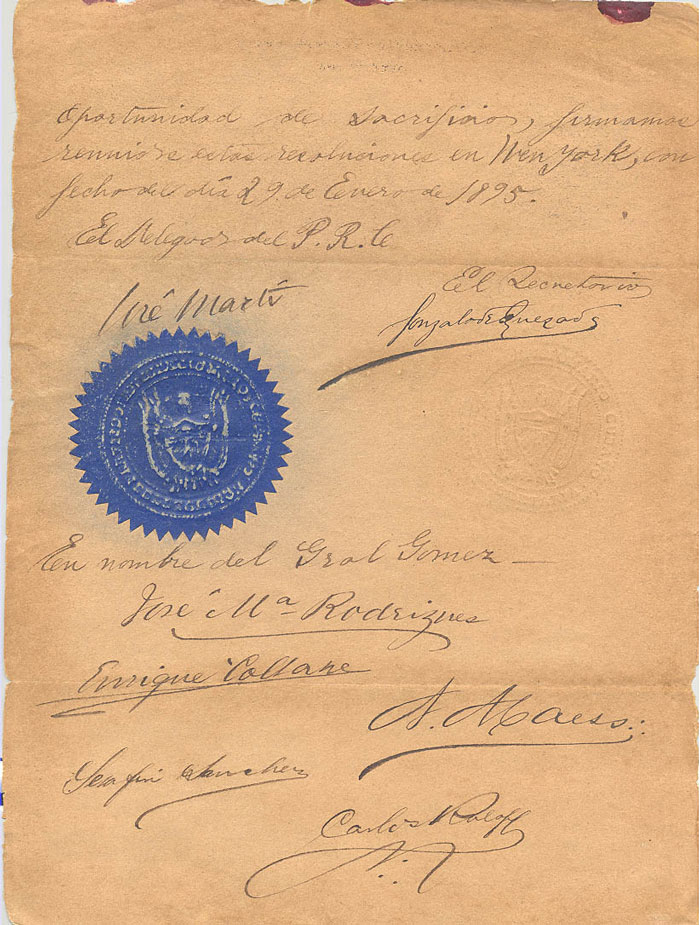 Oportunidad de sacrificio, firmamos
reunidos estas resoluciones en New York, con
fecha del día 29 de Enero de 1895.
El Delegado del P. R. C.
El Secretario
José Martí
Gonzalo de Quesada
En nombre del Gral Gomez —
José Mª Rodriguez
Enrique Collazo
A. Maceo
Serafin Sanchez
Carlos Roloff